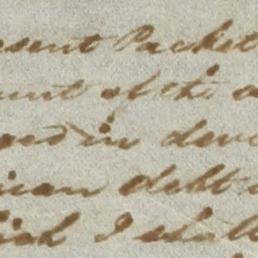 esent Packet
unt of the a
ged in deve
ican debt
hich I shall